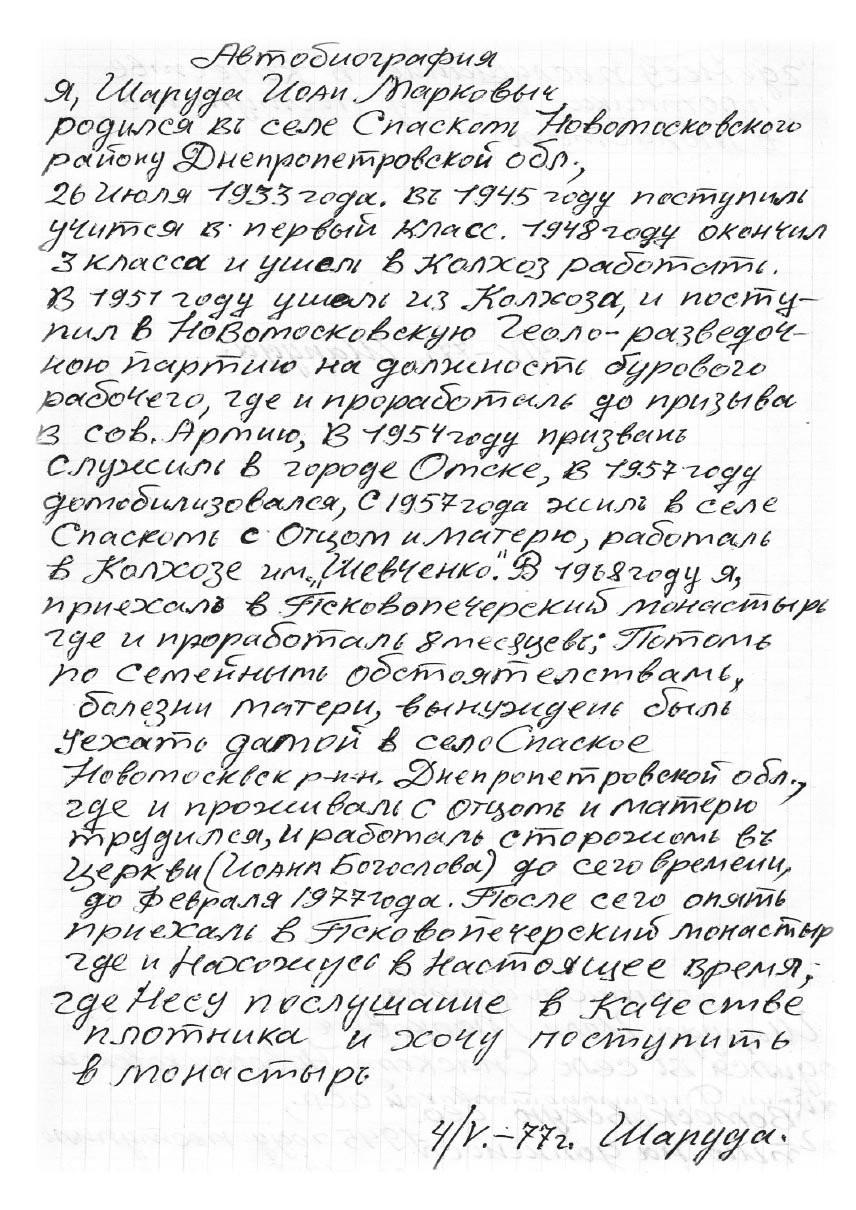 Автобиография
Я, Шаруда Иоан Марковыч
родился въ селе Спаскомъ Новомосковского
району Днепропетровской обл.,
26 Июля 1933 года. Въ 1945 году поступилъ
учится в первый класс. 1948 году окончил
3 класса и ушелъ в Колхоз работать.
В 1951 году ушелъ из Колхоза, и посту-
пил в Новомосковскую Геоло-разведоч-
ною партию на должность бурового
рабочего, где и проработалъ до призыва
в сов. Армию, В 1954 году призванъ
служилъ в городе Омске, в 1957 году
домобилизовался, С 1957 года жилъ в селе
Спаскомъ с Отцом и матерю, работалъ
в Колхозе им. "Шевченко." В 1968 году я,
приехалъ в Псковопечерский монастырь
где и проработалъ 8 месяцевъ; Потомъ
по семейнымъ обстоятелствамъ,
болезни матери, вынужденъ былъ
уехать дамой в село Спаское
Новомосквск р-н-н. Днепропетровской обл.,
где и проживалъ с отцомъ и матерю
трудился, и работалъ сторожомъ въ
Церкви (Иоана Богослова) до сего времени,
до Февраля 1977 года. После сего опять
приехалъ в Псковопечерский монастыр
где и Нахожусь в настоящее время;
где Несу послушание в качестве
плотника и хочу поступить
в монастырь
4/V.-77г. Шаруда.